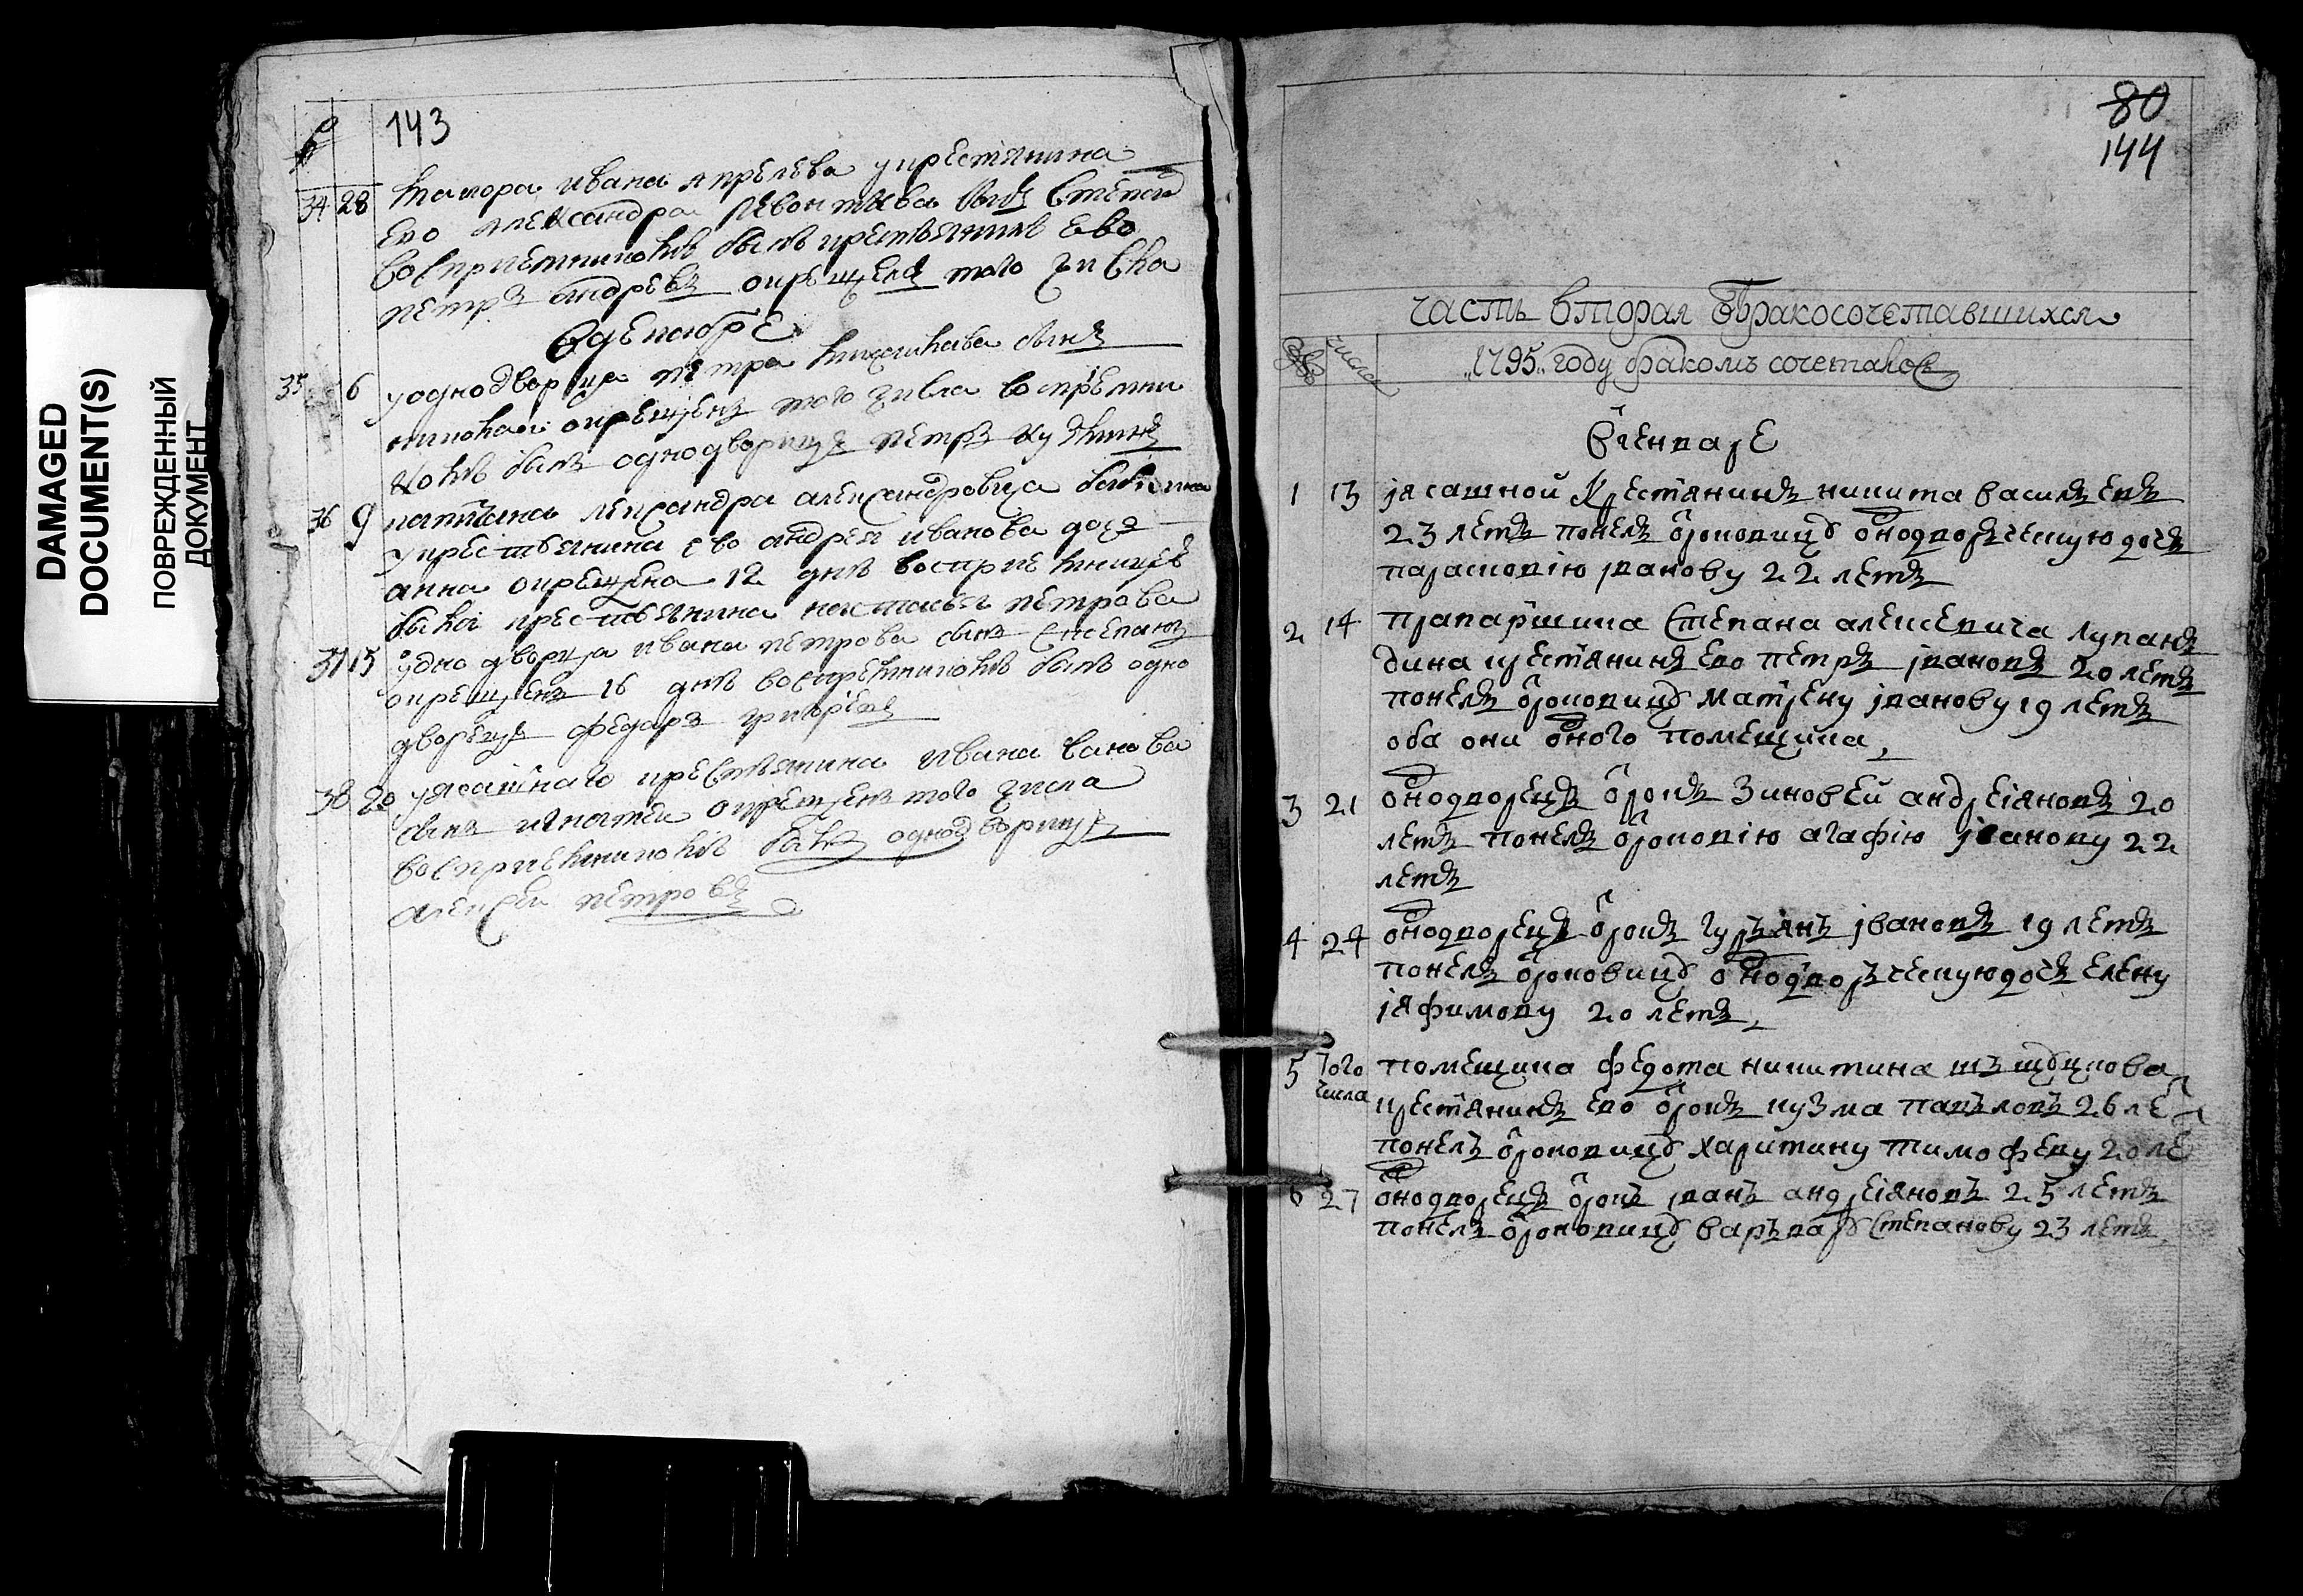 DAMAGED
DOCUMENT(S)
ПОВРЕЖДЕННЫЙ
ДОКУМЕНТ
143
34 28 маиора ивана апрелева у крестянина
ево александра левонтьева сынъ Степанъ
восприемникомъ былъ крестьянинъ ево
петръ андревъ окрещенъ того числа
В декабре
35 6 у однодворца петра сынъ
окрещенъ того числа восприемни
комъ былъ однодворецъ петръ
36 9 капитана александра александровича
у крестьянина ево андрея иванова дочь
анна окрещена 12 дня восприемницей
была крестьянина настасья петрова
37 15 у однодворца ивана петрова сынъ Степанъ
окрещенъ 16 дня восприемникомъ былъ одно
дворецъ федаръ григоревъ
38 20 у ясашнаго крестьянина ивана иванова
сынъ игнатей окрещенъ того числа
восприемникомъ былъ однодворецъ
алексеи петровъ
80
144
Часть вторая о бракосочетавшихся
числа
1795 году бракомъ сочетанос
В генваре
1 13 ясашной крестянинъ никита василъевъ
23 летъ понелъ отроковицу однодворъческую дочь
парасковию иванову 22 летъ
2 14 прапарщика Степана алексевича лупан
дина крестянинъ ево петръ ивановъ 20 летъ
понелъ отроковицу матрену иванову 19 летъ
оба они одного помещика
3 21 однодворецъ отрокъ зиновей андреіяновъ 20
летъ понелъ отроковию агафию иванову 22
летъ
4 24 однодворецъ отрокъ гуръянъ ивановъ 19 летъ
понелъ отроковицу однодворъческую дочъ елену
іяфимову 20 летъ
5 того числа помещика федота никитина
крестянинъ ево отрокъ кузма павъловъ 26 ле
понелъ отроковицу харитину тимофеву 20 ле
6 27 однодворецъ отрокъ иванъ андреіяновъ 25 летъ
понелъ отроковицу варъвару Степанову 23 летъ